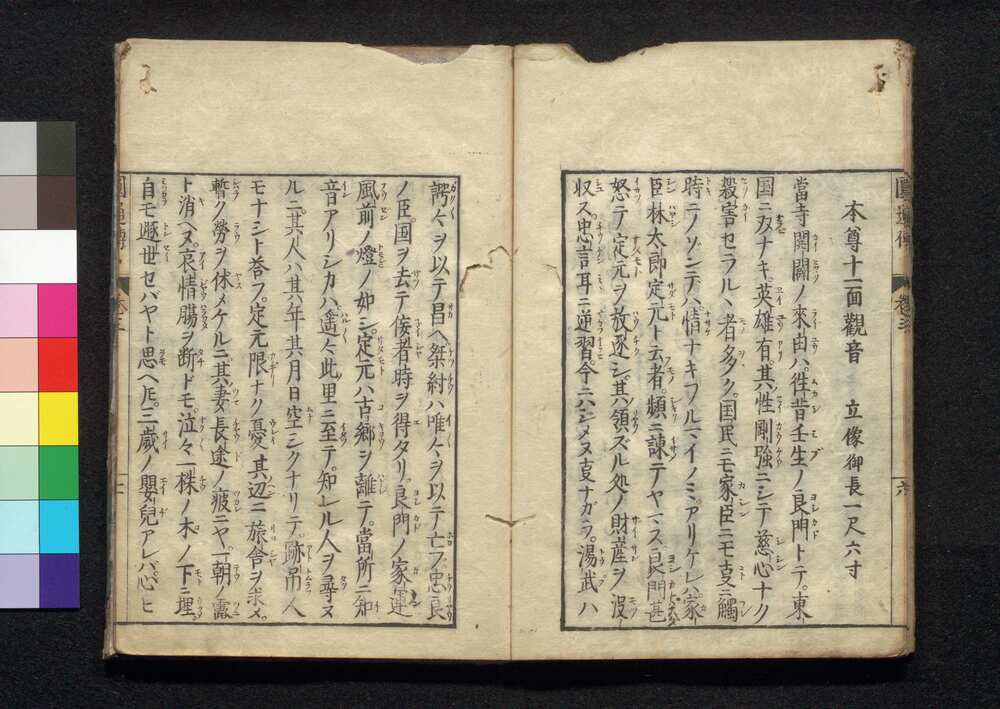 本尊十一面觀音 立像御長一尺六寸
當寺開闢ノ來由ハ徃昔壬生ノ良門トテ東
国ニ双ナキ英雄有其性剛強ニシテ慈心ナク
殺害セラルヽ者多ク国民ニモ家臣ニモ支ニ觸
時ニノゾンデハ情ナキフルマイノミアリケレバ家
臣林太郎定元ト云者頻ニ諫テヤマス良門甚
怒テ定元ヲ放逐シ其領ズル処ノ財産ヲ没
収ス忠言耳ニ逆習今ニハジメヌ支ナガラ湯武ハ
諤々ヲ以テ昌ヘ桀紂ハ唯々ヲ以テ亡フ忠良
ノ臣国ヲ去テ佞者時ヲ得タリ良門ノ家運
風前ノ燈ノ如シ定元ハ古郷ヲ離テ當所ニ知
音アリシカバ遙々此里ニ至テ知レル人ヲ尋ヌ
ルニ其人ハ其年其月日空シクナリテ跡吊人
モナシト荅フ定元限ナク憂其辺ニ旅舍ヲ求メ
暫ク勞ヲ休メケルニ其妻長途ノ疲ニヤ一朝ノ露
ト消ヘヌ哀情腸ヲ断ドモ泣々一株ノ木ノ下ニ埋
自モ遯世セバヤト思ヘ𪜈三歳ノ嬰兒アレバ心ヒ
圓通傳 卷三 六